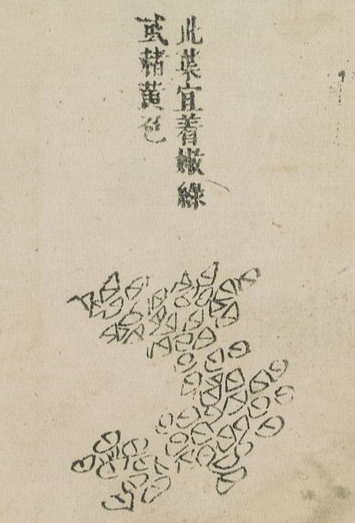 此葉宜着嫩綠
或赭黄色